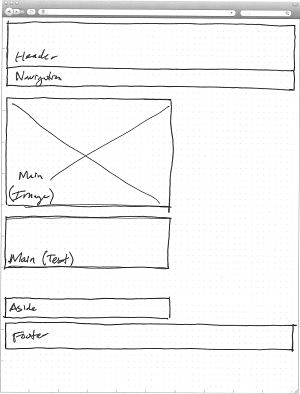 Header
Navigation
Main
(Image)
Main (Text)
Aside
Footer